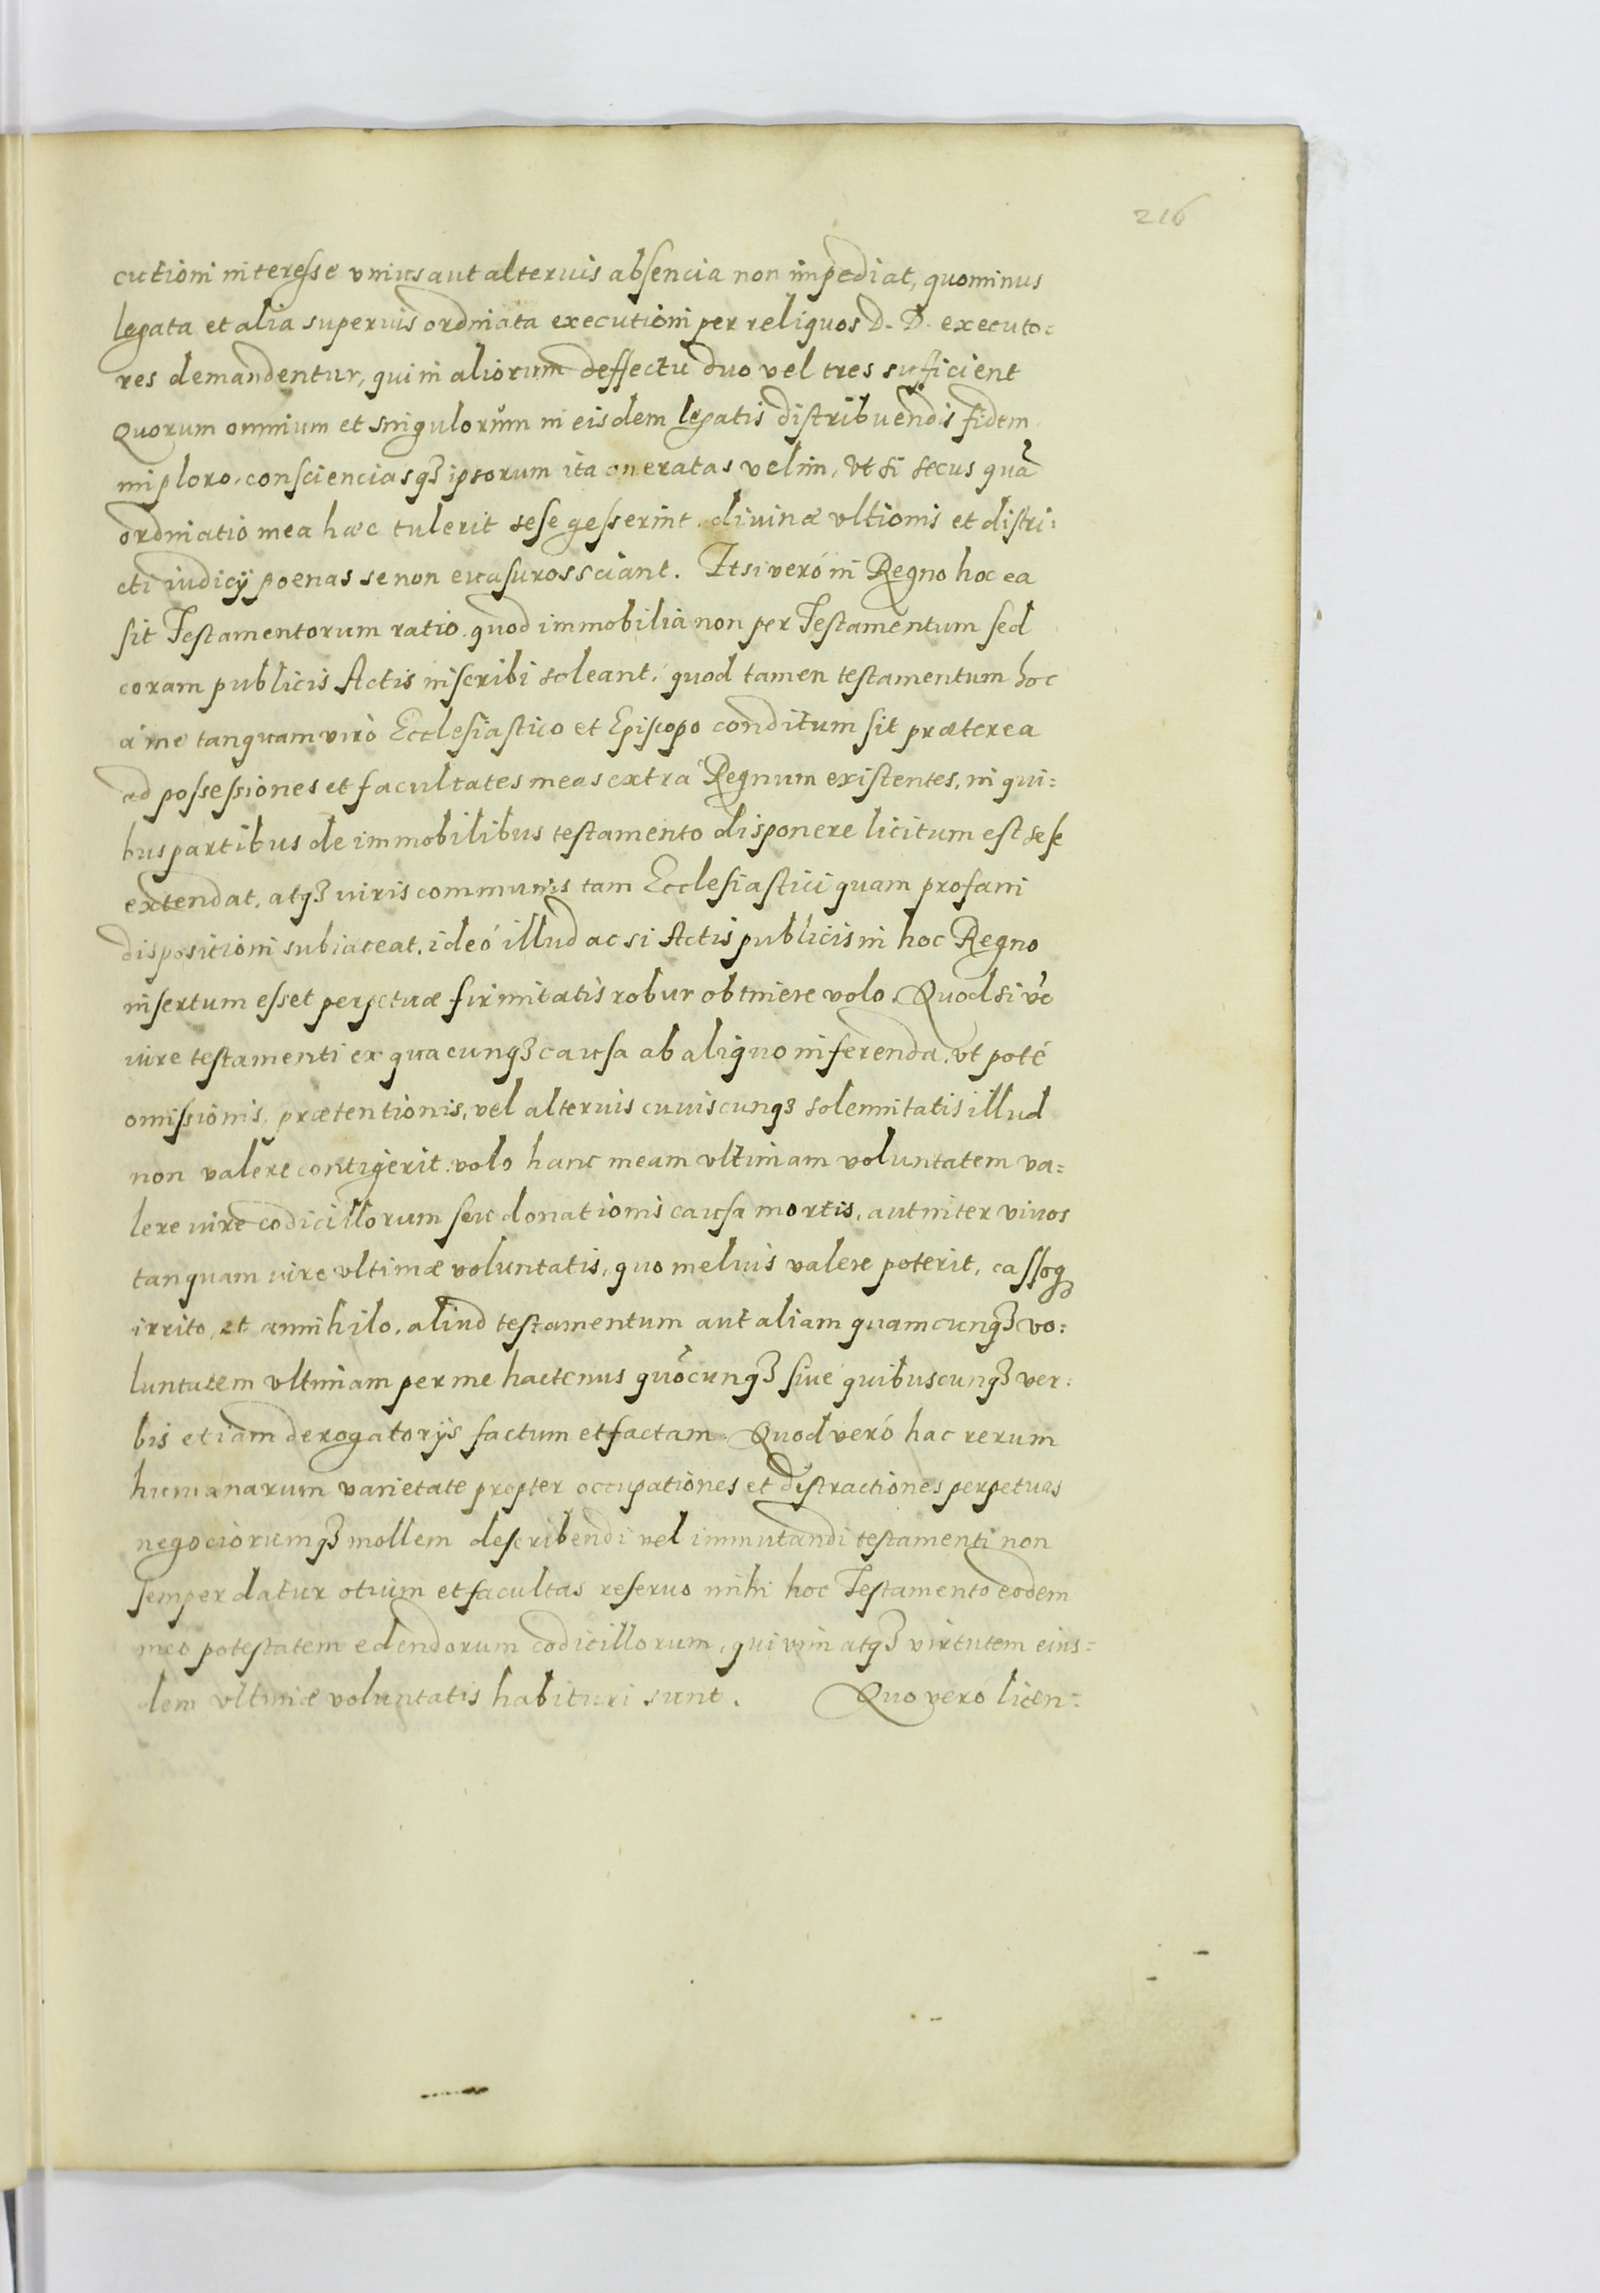 216
cutioni interesse vnius aut alterius absencia non impediat, quominus
legata et alia superius ordinata executioni per reliquos D. D. executo=
res demandentur, qui in aliorum deffectu duo vel tres suficient
Quorum omnium et singulorum in eisdem legatis distribuendis fidem
imploro, consciencias qȝ ipsorum ita oneratas velim, vt si secus quā
ordinatio mea hæc tulerit sese gesserint. diuinæ vltionis et distri=
cti iudicÿ poenas se non euasuros sciant. Etsi veró in Regno hoc ea
sit Testamentorum ratio. quod immobilia non per Testamentum sed
coram publicis Actis inscribi soleant, quod tamen testamentum hoc
á me tanquam viro Ecclesiastico et Episcopo conditum sit præterea
ad possessiones et facultates meas extra Regnum existentes, in qui=
bus partibus de immobilibus testamento disponere licitum est sese
extendat, atqȝ iuris communis tam Ecclesiastici quam profani
dispositioni subiaceat, ideó illud ac si Actis publicis in hoc Regno
insertum esset perpetuæ firmitatis robur obtinere volo. Quod si vō
iure testamenti ex quacunqȝ causa ab aliquo inferenda, vt poté
omissionis, prætentionis, vel alterius cuiuscunqȝ solennitatis illud
non valere contigerit. volo hanc meam vltimam voluntatem va=
lere iure codicillorum seu donationis causa mortis, aut inter viuos
tanquam iure vltimæ voluntatis, quo melius valere poterit, cassoqȝ
irrito, et annihilo. aliud testamentum aut aliam quamcunqȝ vo=
luntatem vltimam per me hactenus quōcunqȝ siue quibuscunqȝ ver=
bis etiam derogatorÿs factum et factam. Quod veró hac rerum
humanarum varietate propter occupationes et distractiones perpetuas
negociorumqȝ mollem describendi vel immutandi testamenti non
semper datur otium et facultas reseruo mihi hoc Testamento eodem
meo potestatem edendorum codicillorum, qui vim atqȝ virtutem eius=
dem vltimæ voluntatis habituri sunt. Quo veró licen=